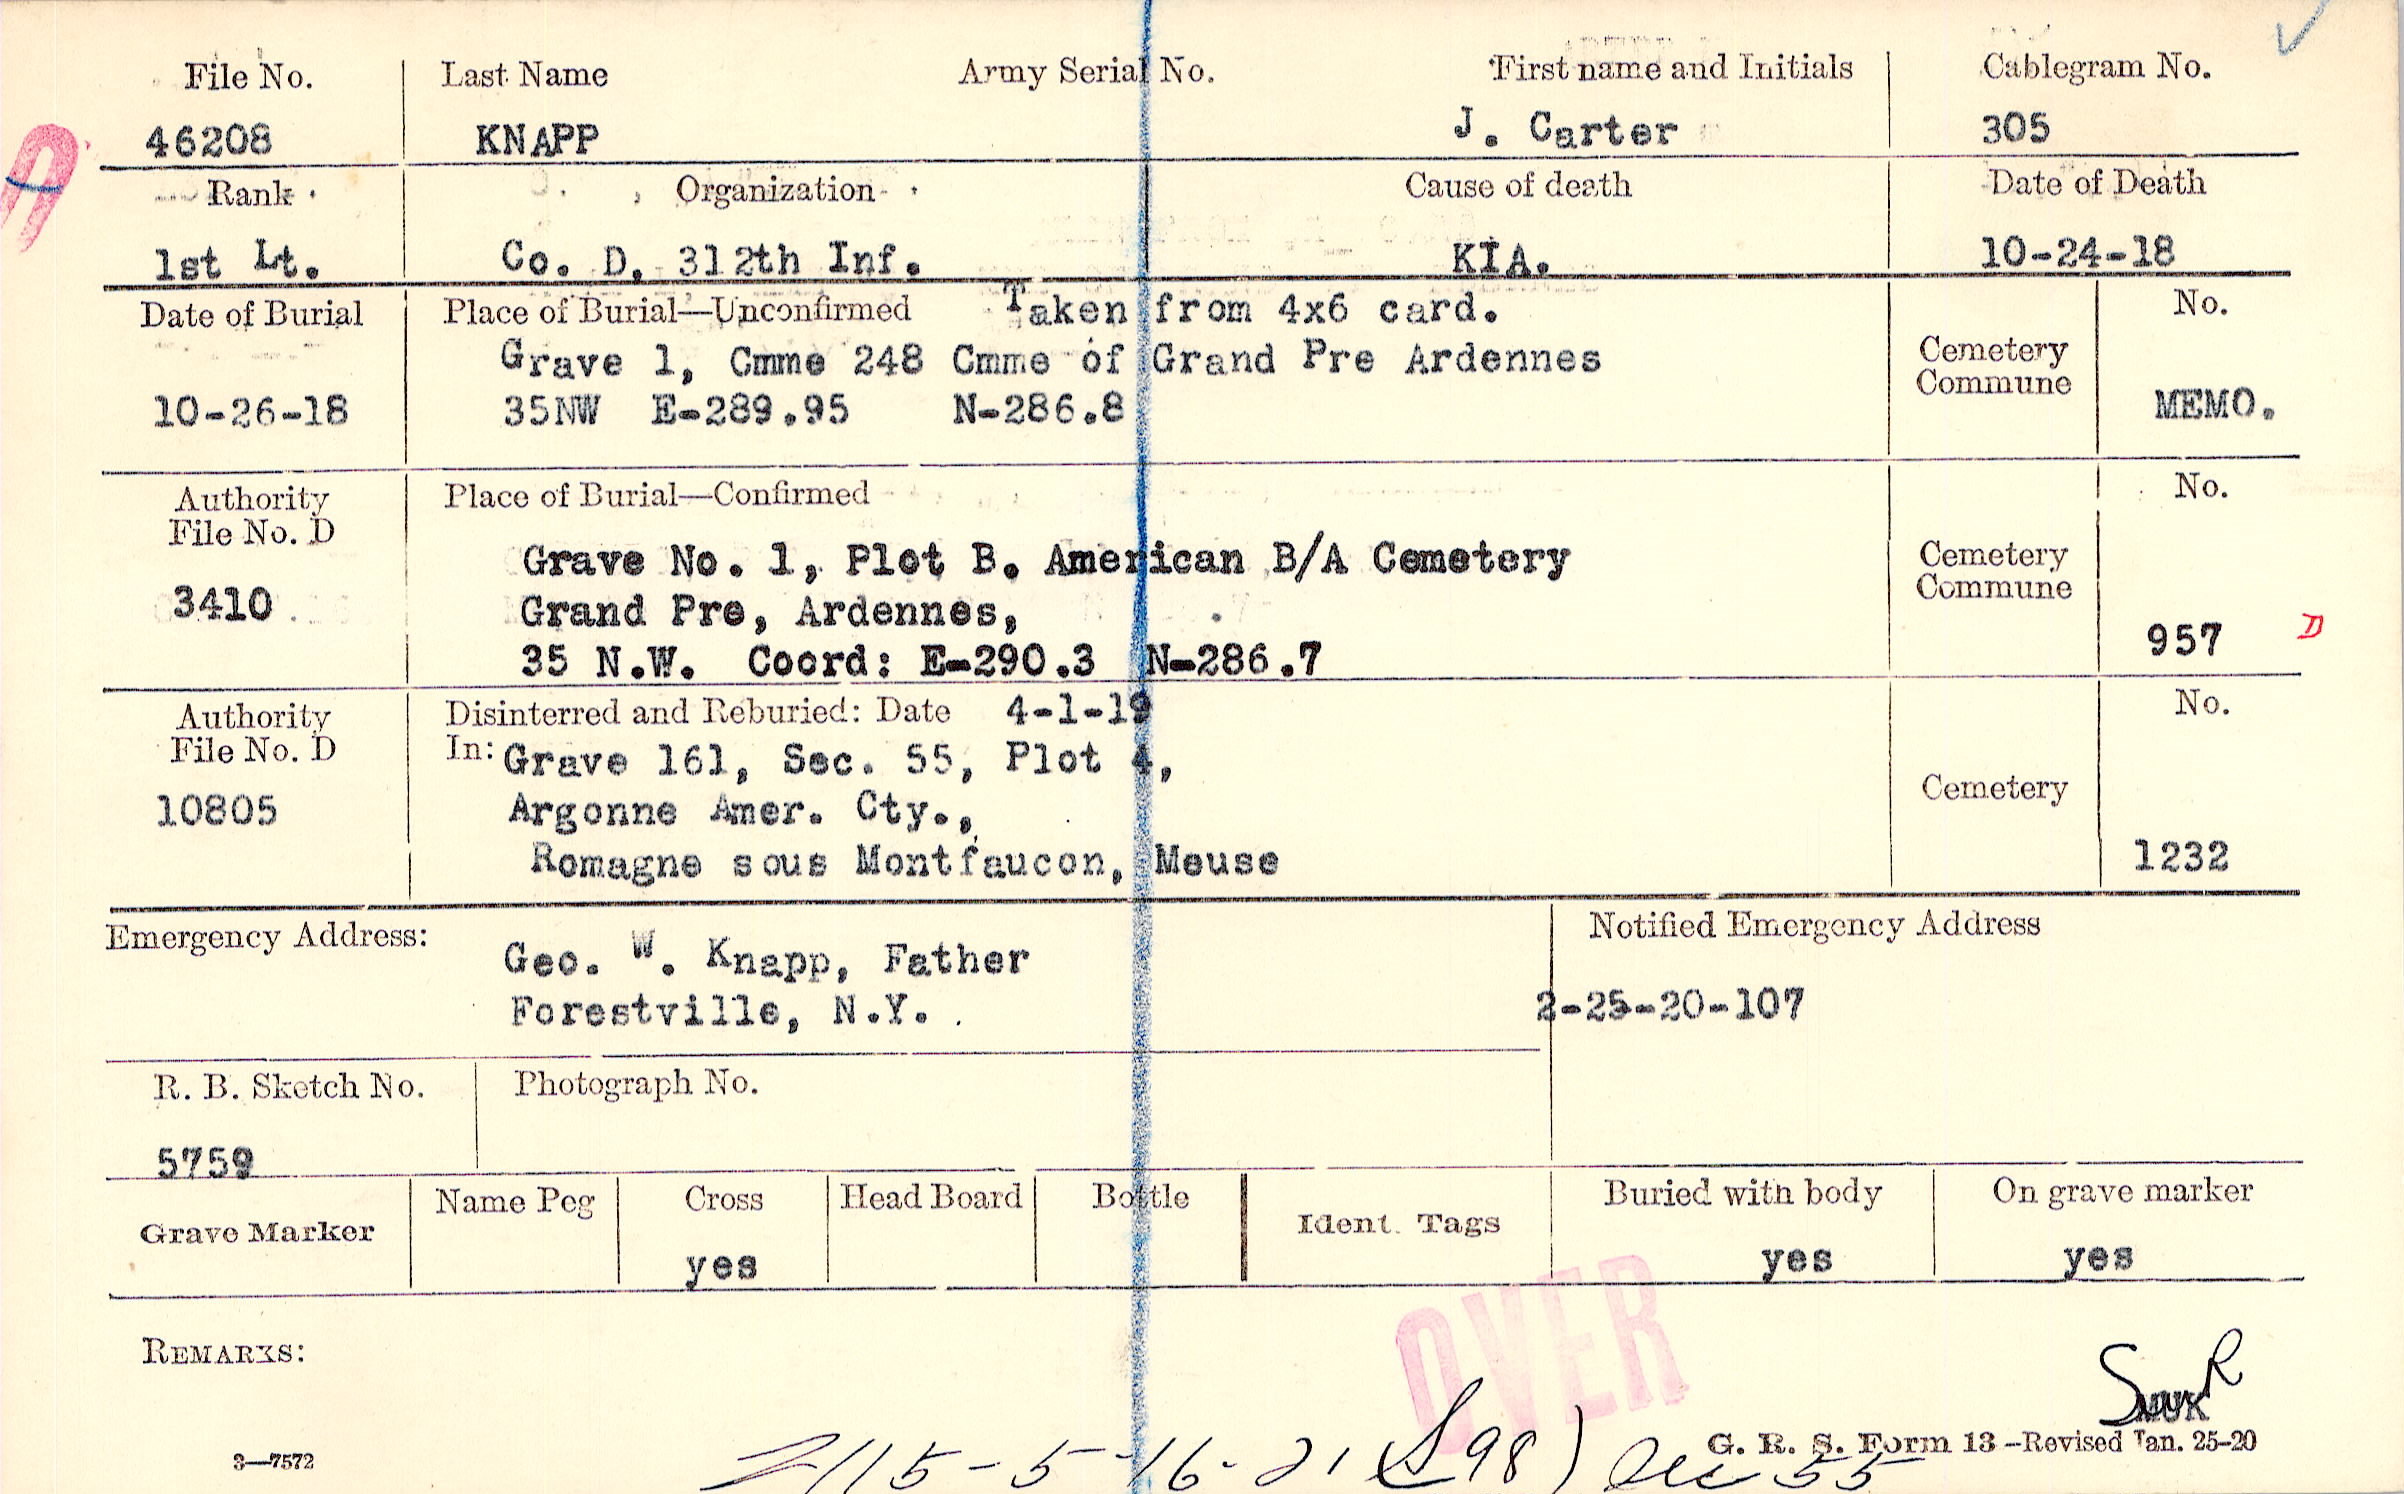 File No. Last Name Army Serial No. First name and Initials Cablegram No.
46208 KNAPP J. Carter 305
Rank Organization Cause of death Date of Death
1st Lt. Co. D. 312th Inf. KIA. 10-24-18
Date of Burial Place of Burial—Unconfirmed Taken from 4x6 card. No.
Grave 1, Cmme 248 Cmme of Grand Pre Ardennes Cemetery
Commune
10-26-18 35NW E-289.95 N-286.8 MEMO.
Authority Place of Burial—Confirmed No.
File No. D
Grave No. 1, Plot B. American B/A Cemetery Cemetery
Commune
3410 Grand Pre, Ardennes,
957 D
35 N.W. Coord: E-290.3 N-286.7
Authority Disinterred and Reburied: Date 4-1-19 No.
File No. D In: Grave 161, Sec. 55, Plot 4,
10805 Argonne Amer. Cty., Cemetery
Romagne sous Montfaucon, Meuse 1232
Emergency Address: Notified Emergency Address
Geo. W. Knapp, Father
Forestville, N.Y. 2-25-20-107
R. B. Sketch No. Photograph No.
5759
Grave Marker Name Peg Cross Head Board Bottle Ident. Tags Buried with body On grave marker
yes yes yes
OVER
REMARKS:
R
3—7572 G. R. S. Form 13—Revised Jan. 25-20
5-16-21 (S98) Sec 55
A